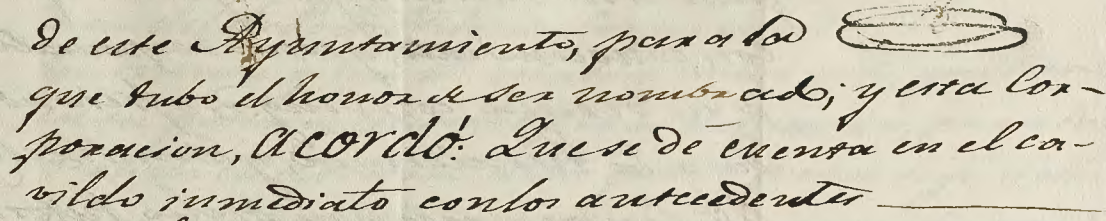 de este Ayuntamiento, para la
que tubo el honor de ser nombrado; y esta Cor-
poracion, acordó: Que se dé cuenta en el ca-
vildo inmediato con los antecedentes